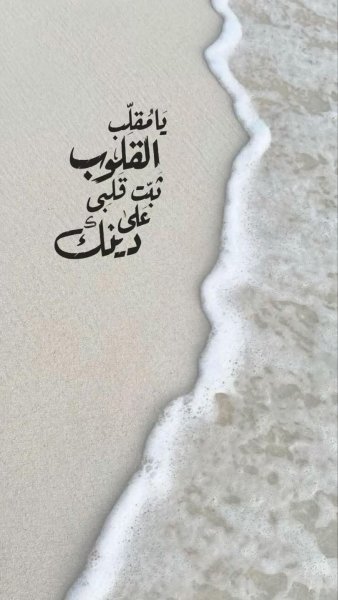 يَا مُقلِّب
القلوب
ثبّت قلبي
عَلىٰ
دينك